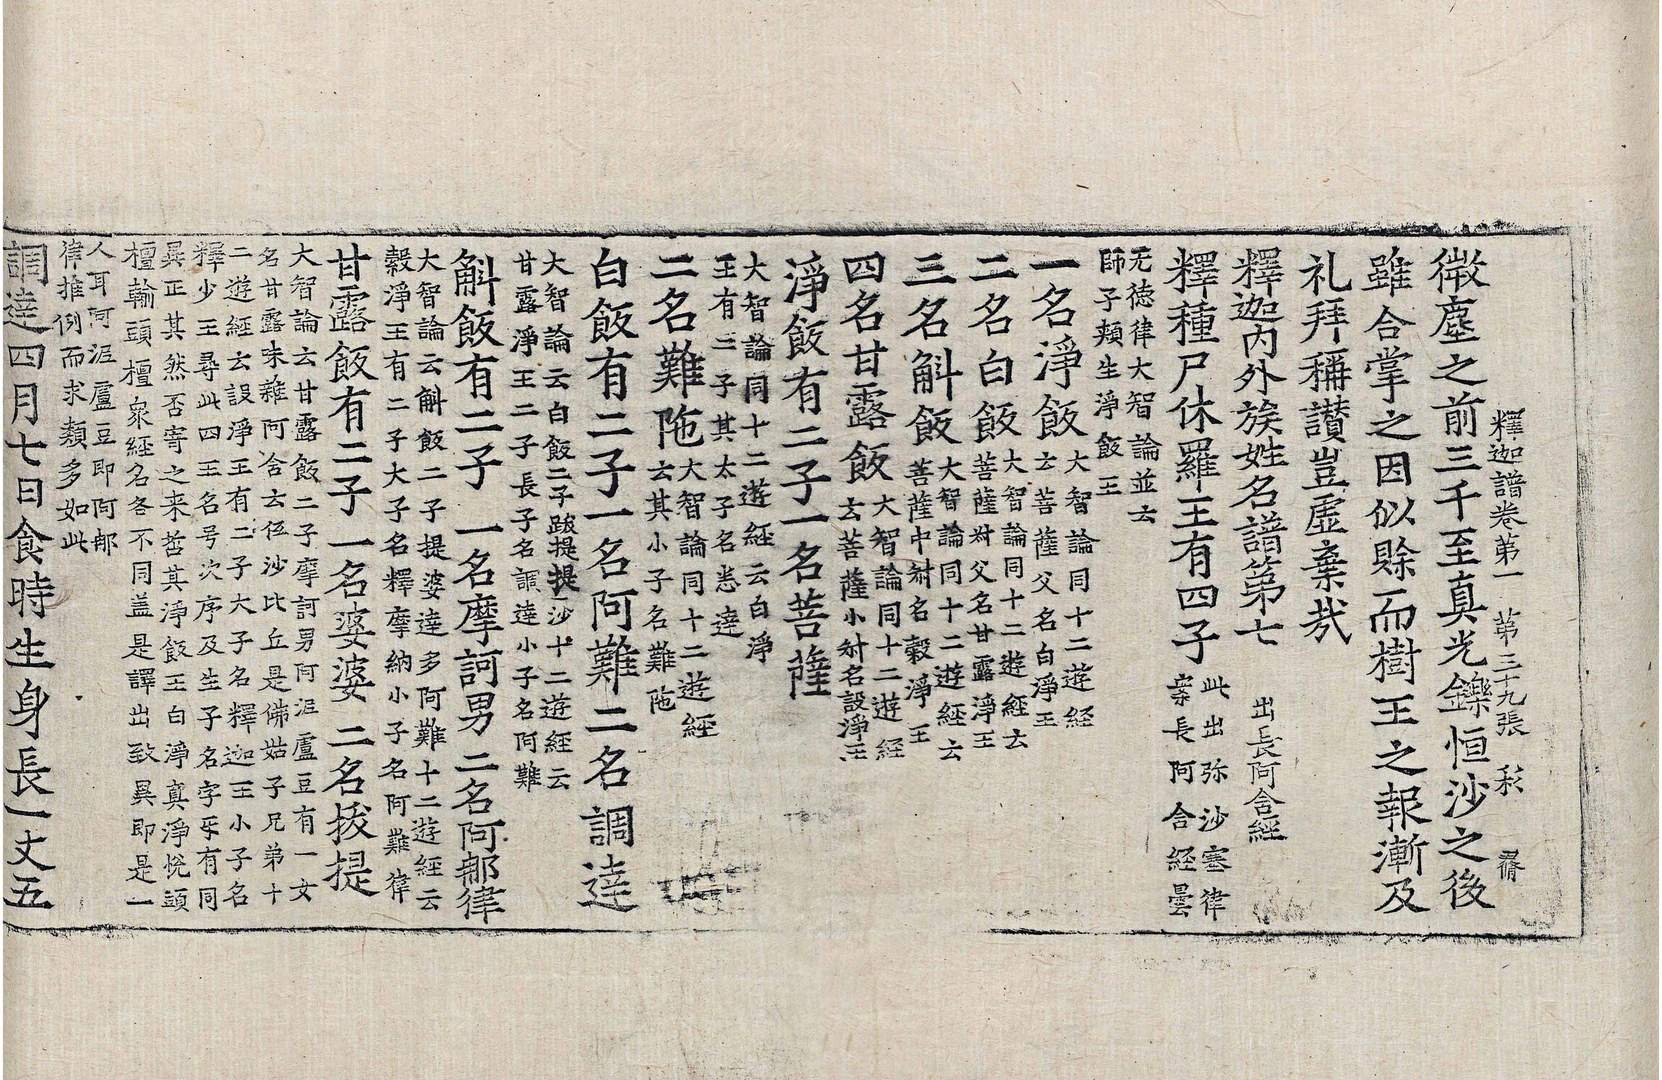 釋迦譜卷第一　第三十九張　彩
微塵之前三千至真光鑠恒沙之後
雖合掌之因似賒而樹王之報漸及
礼拜稱讃豈虛棄哉
釋迦內外族姓名譜第七　出長阿含經
釋種尸休羅王有四子　此出弥沙塞律
案長阿含經曇
无德律大智論並云
師子頰生淨飯王
一名淨飯　大智論同十二遊經
云菩薩父名白淨王
二名白飯　大智論同十二遊經云
菩薩叔父名甘露淨王
三名斛飯　大智論同十二遊經云
菩薩中叔名穀淨王
四名甘露飯　大智論同十二遊經
云菩薩小叔名設淨王
淨飯有二子一名菩薩
大智論同十二遊經云白淨
王有二子其太子名悉達
二名難陁　大智論同十二遊經
云其小子名難陁
白飯有二子一名阿難二名調達
大智論云白飯二子跋提提沙十二遊經云
甘露淨王二子長子名調達小子名阿難
斛飯有二子　一名摩訶男二名阿那律
大智論云斛飯二子提婆達多阿難十二遊經云
穀淨王有二子大子名釋摩納小子名阿難律
甘露飯有二子　一名婆婆　二名拔提
大智論云甘露飯二子摩訶男阿泥盧豆有一女
名甘露味雜阿含云低沙比丘是佛姑子兄弟十
二遊經云設淨王有二子大子名釋迦王小子名
釋少王尋此四王名号次序及生子名字互有同
異正其然否寄之来哲其淨飯王白淨真淨悅頭
檀輸頭檀衆經名各不同盖是譯出致異即是一
人耳阿泥盧豆即阿那
律推例而求類多如此
調達四月七日食時生身長一丈五